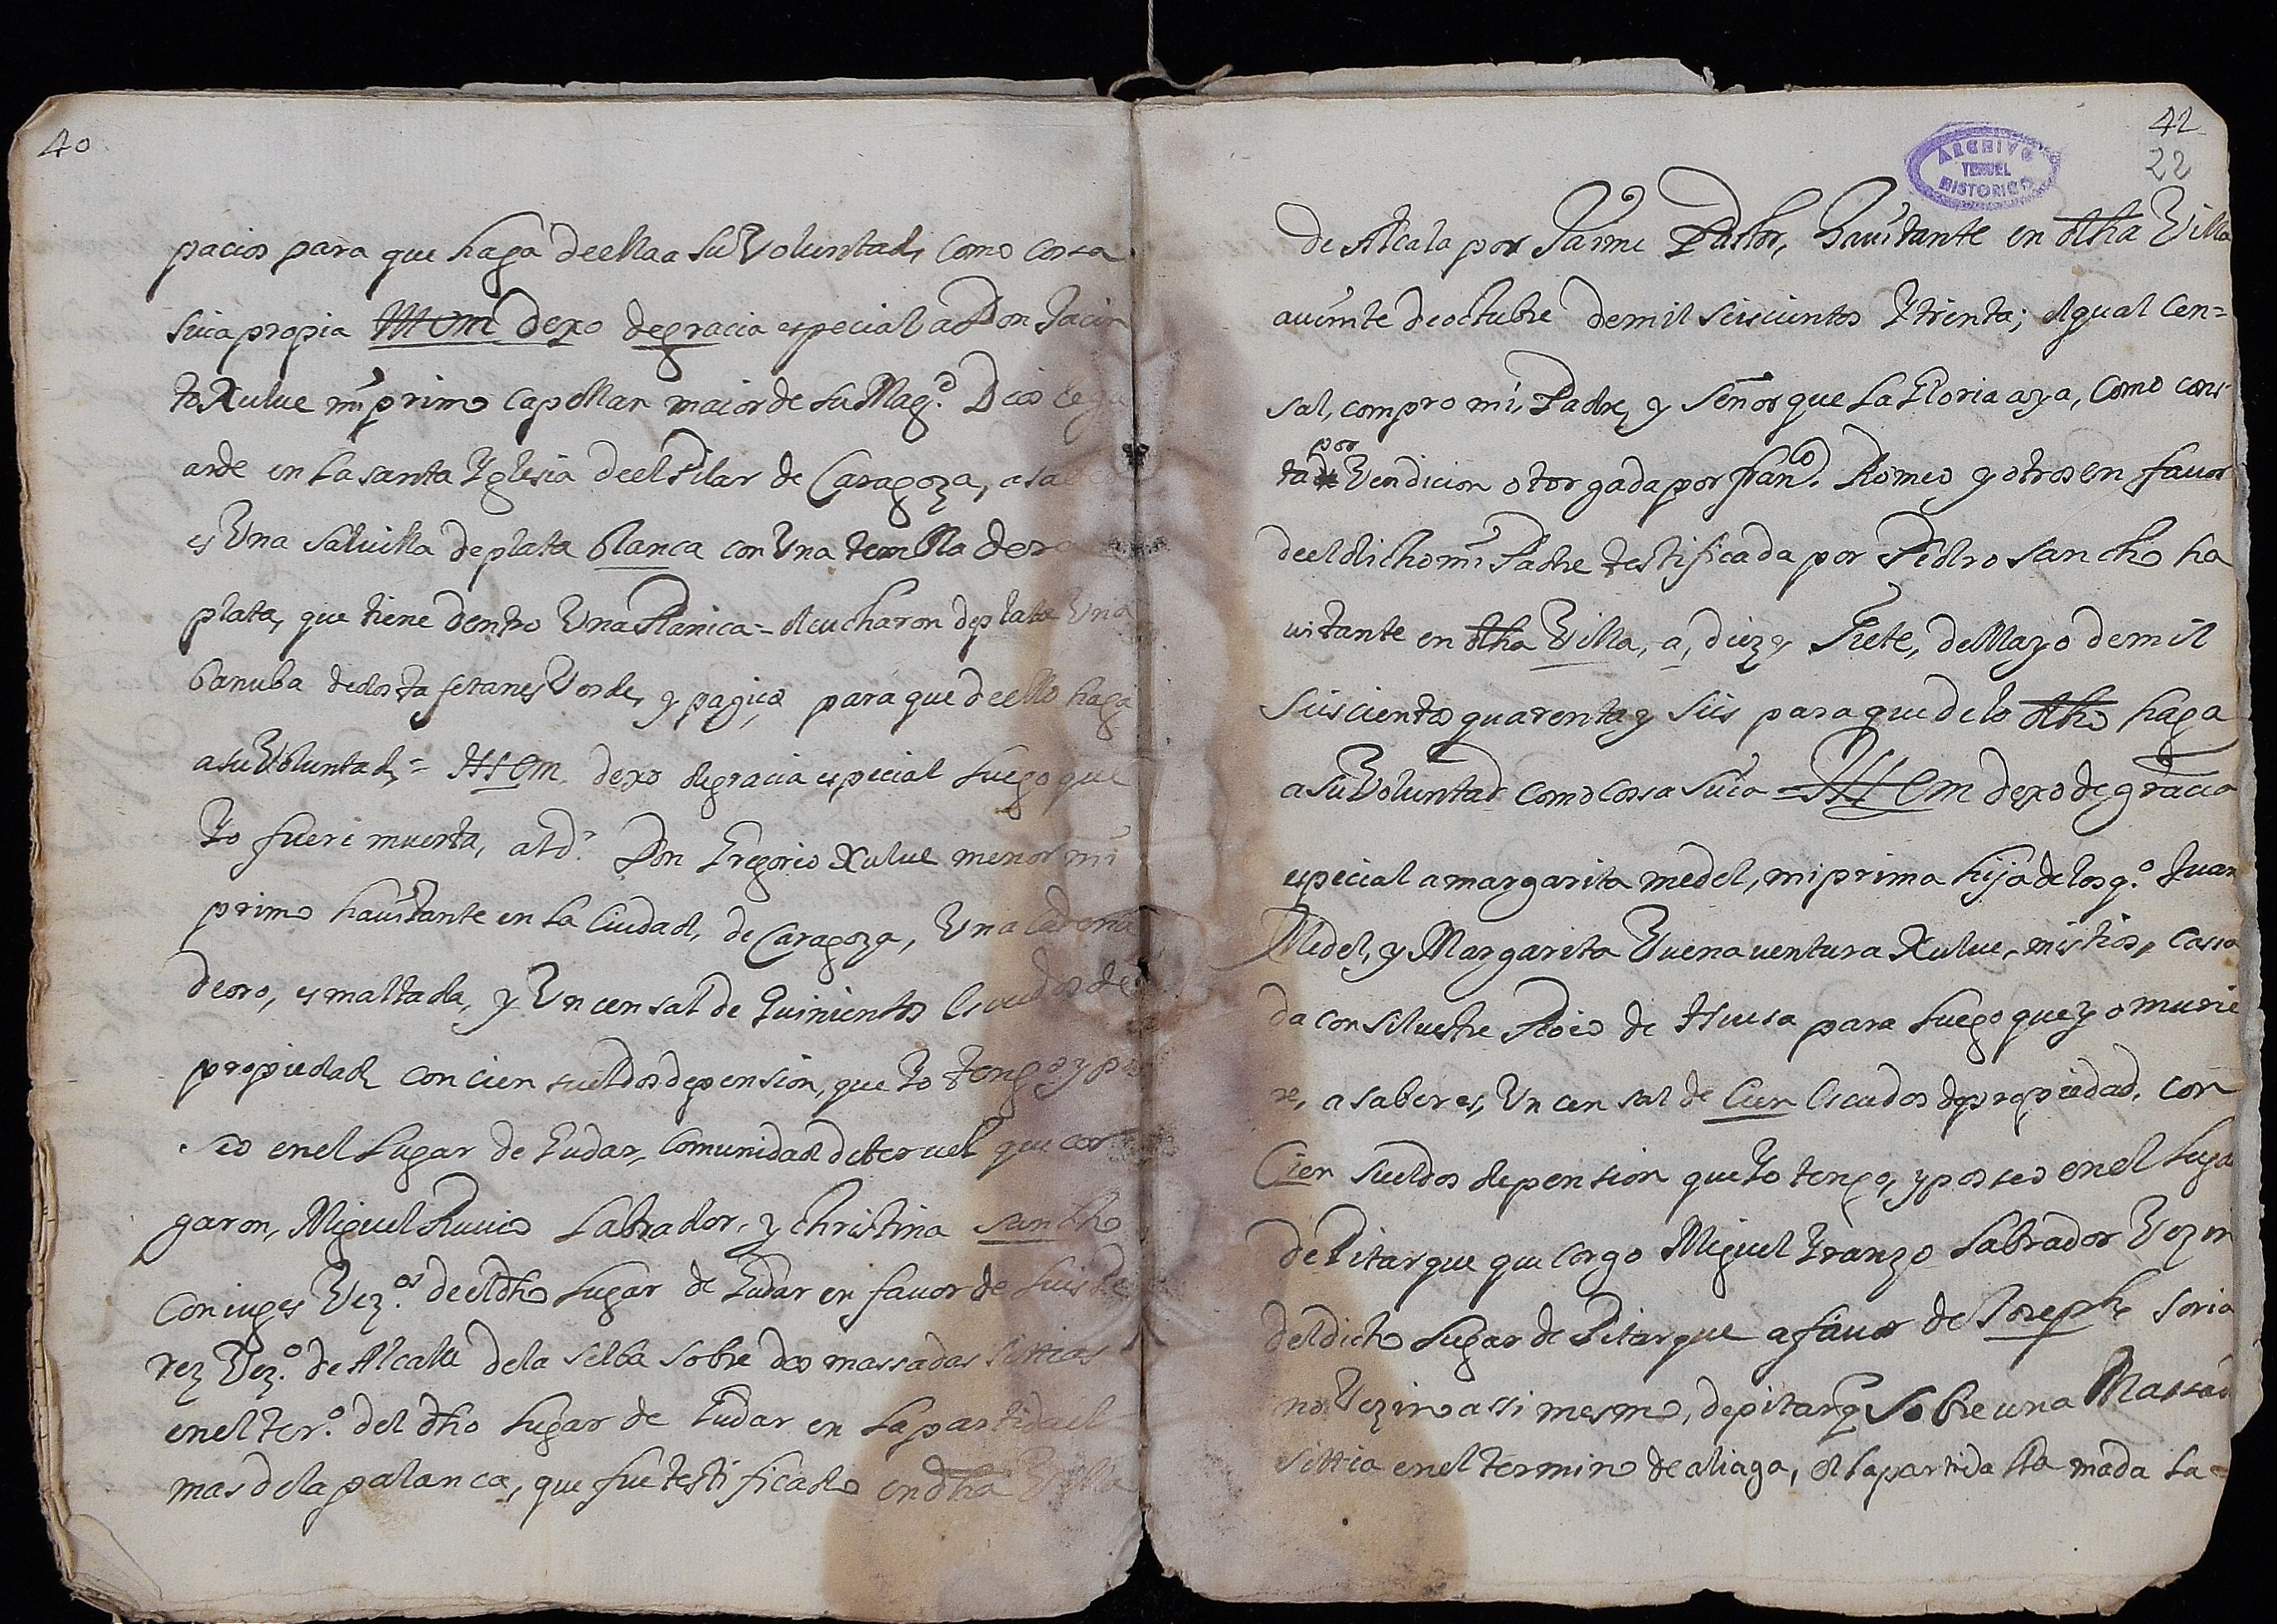 40
pacios para que haga deella a su Voluntad, como cossa
suia propia Ittem dexo de gracia especial a Don Jacin
to Xulue mi primo Capellan maior de su Mag.d Dios le gu
arde en La santa Yglesia de el Pilar de Caragoza, a saber
es Una saluilla de plata blanca con Una
plata, que tiene dentro Una Ranica = el cucharon de plata Una
banuba de dos tafetanes Verde, y pagiço para que de ello haga
a su Voluntad, = Ittem dexo de gracia especial luego que
Yo fuere muerta, al d.r Don Gregorio Xulue menor mi
primo hauitante en La Ciudad, de Caragoza, Una Cadena
de oro, esmaltada, y Un censal de Quinientos Escudos de
propiedad con cien sueldos de pension, que Yo tengo y pos
seo en el Lugar de Gudar, comunidad de teruel que car
garon, Miguel Ruuio Labrador, y Christina sancho
coniuges Vez.os de el dho Lugar de Gudar en fauor de Luis Pe
rez Vez.o de Alcala de la selba sobre dos massadas sittias
en el ter.o del dho Lugar de Gudar en La partida el
mas de la palanca, que fue testificado en dha Villa
42
22
ARCHIVO
TERUEL
HISTORICO
de Alcala por Jaime Pastor, hauitante en dha Villa
a ueinte de octubre de mil seiscientos Y trenta; el qual Cen=
sal, compro mi, Padre, y Señor que La Gloria aya, como cons
por
ta Vendicion otorgada por fran.co Romeo y otros en fauor
de el dicho mi Padre testificada por Pedro sancho ha
uitante en dha Villa, a, diez y Siete, de Mayo de mil
Seiscientos quarenta y Seis para que de lo dho haga
a su Voluntad como cossa suia = Ittem dexo de gracia
especial a margarita medel, mi prima hija de los q.o Juan
Medel, y Margarita Buenauentura Xulue, mis tios, cassa
da con Siluestre Roio de Huesa para luego que yo murie
re, a saber es, Un censal de Cien Escudos de propiedad, con
Cien sueldos de pension que Yo tengo, y posseo en el Luga
de Pitarque que cargo Miguel Yranzo Labrador Vezin
del dicho Lugar de Pitarque a fauor de Joseph Soria
no Vezino assi mesmo, de pitarq Sobre una Massad
sittia en el termino de aliaga, el la partida lla mada La=